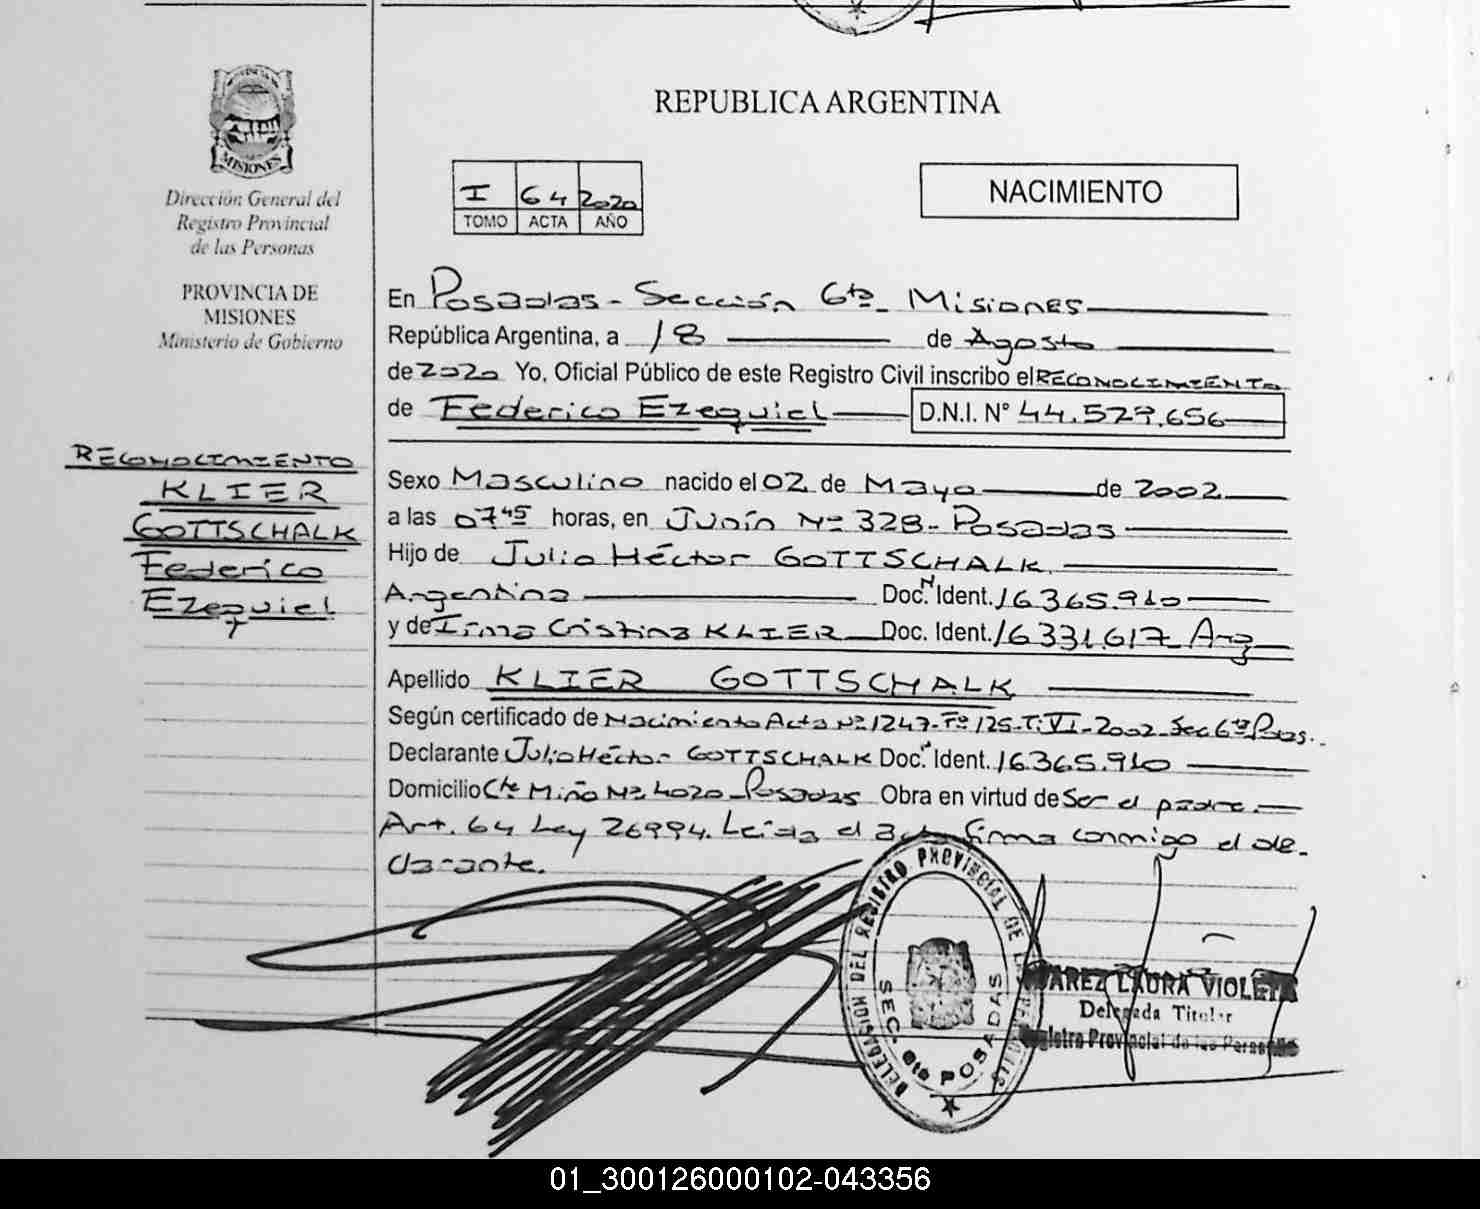 PROVINCIA DE
MISIONES
Dirección General del
Registro Provincial
de las Personas
PROVINCIA DE
MISIONES
Ministerio de Gobierno
RECONOCIMIENTO
KLIER
GOTTSCHALK
Federico
Ezequiel
REPUBLICA ARGENTINA
I 64 2020
TOMO ACTA AÑO
NACIMIENTO
En Posadas - Sección 6ta - Misiones
República Argentina, a 18 de Agosto
de 2020 Yo, Oficial Público de este Registro Civil inscribo el RECONOCIMIENTO
de Federico Ezequiel D.N.I. N° 44.529.656
Sexo Masculino nacido el 02 de Mayo de 2002
a las 07 45 horas, en Junín Nº 328 - Posadas
Hijo de Julio Héctor GOTTSCHALK
Argentina Doc. Ident. 16365.910
y de Irma Cristina KLIER Doc. Ident. 16331.617 Arg
Apellido KLIER GOTTSCHALK
Según certificado de Nacimiento Acta Nº 1247-Fº 125-T.VI-2002-Sec 6ta Pdas.
Declarante Julio Héctor GOTTSCHALK Doc. Ident. 16.365.910
Domicilio Cte Miño Nº 4020 - Posadas Obra en virtud de Ser el padre
Art. 64 Ley 26994. Leída el acta firma conmigo el de-
clarante.
DELEGACION DEL REGISTRO PROVINCIAL DE
SEC. 6ta POSADAS
LAURA VIOLETA
Delegada Titular
Registro Provincial de las Personas
01_300126000102-043356